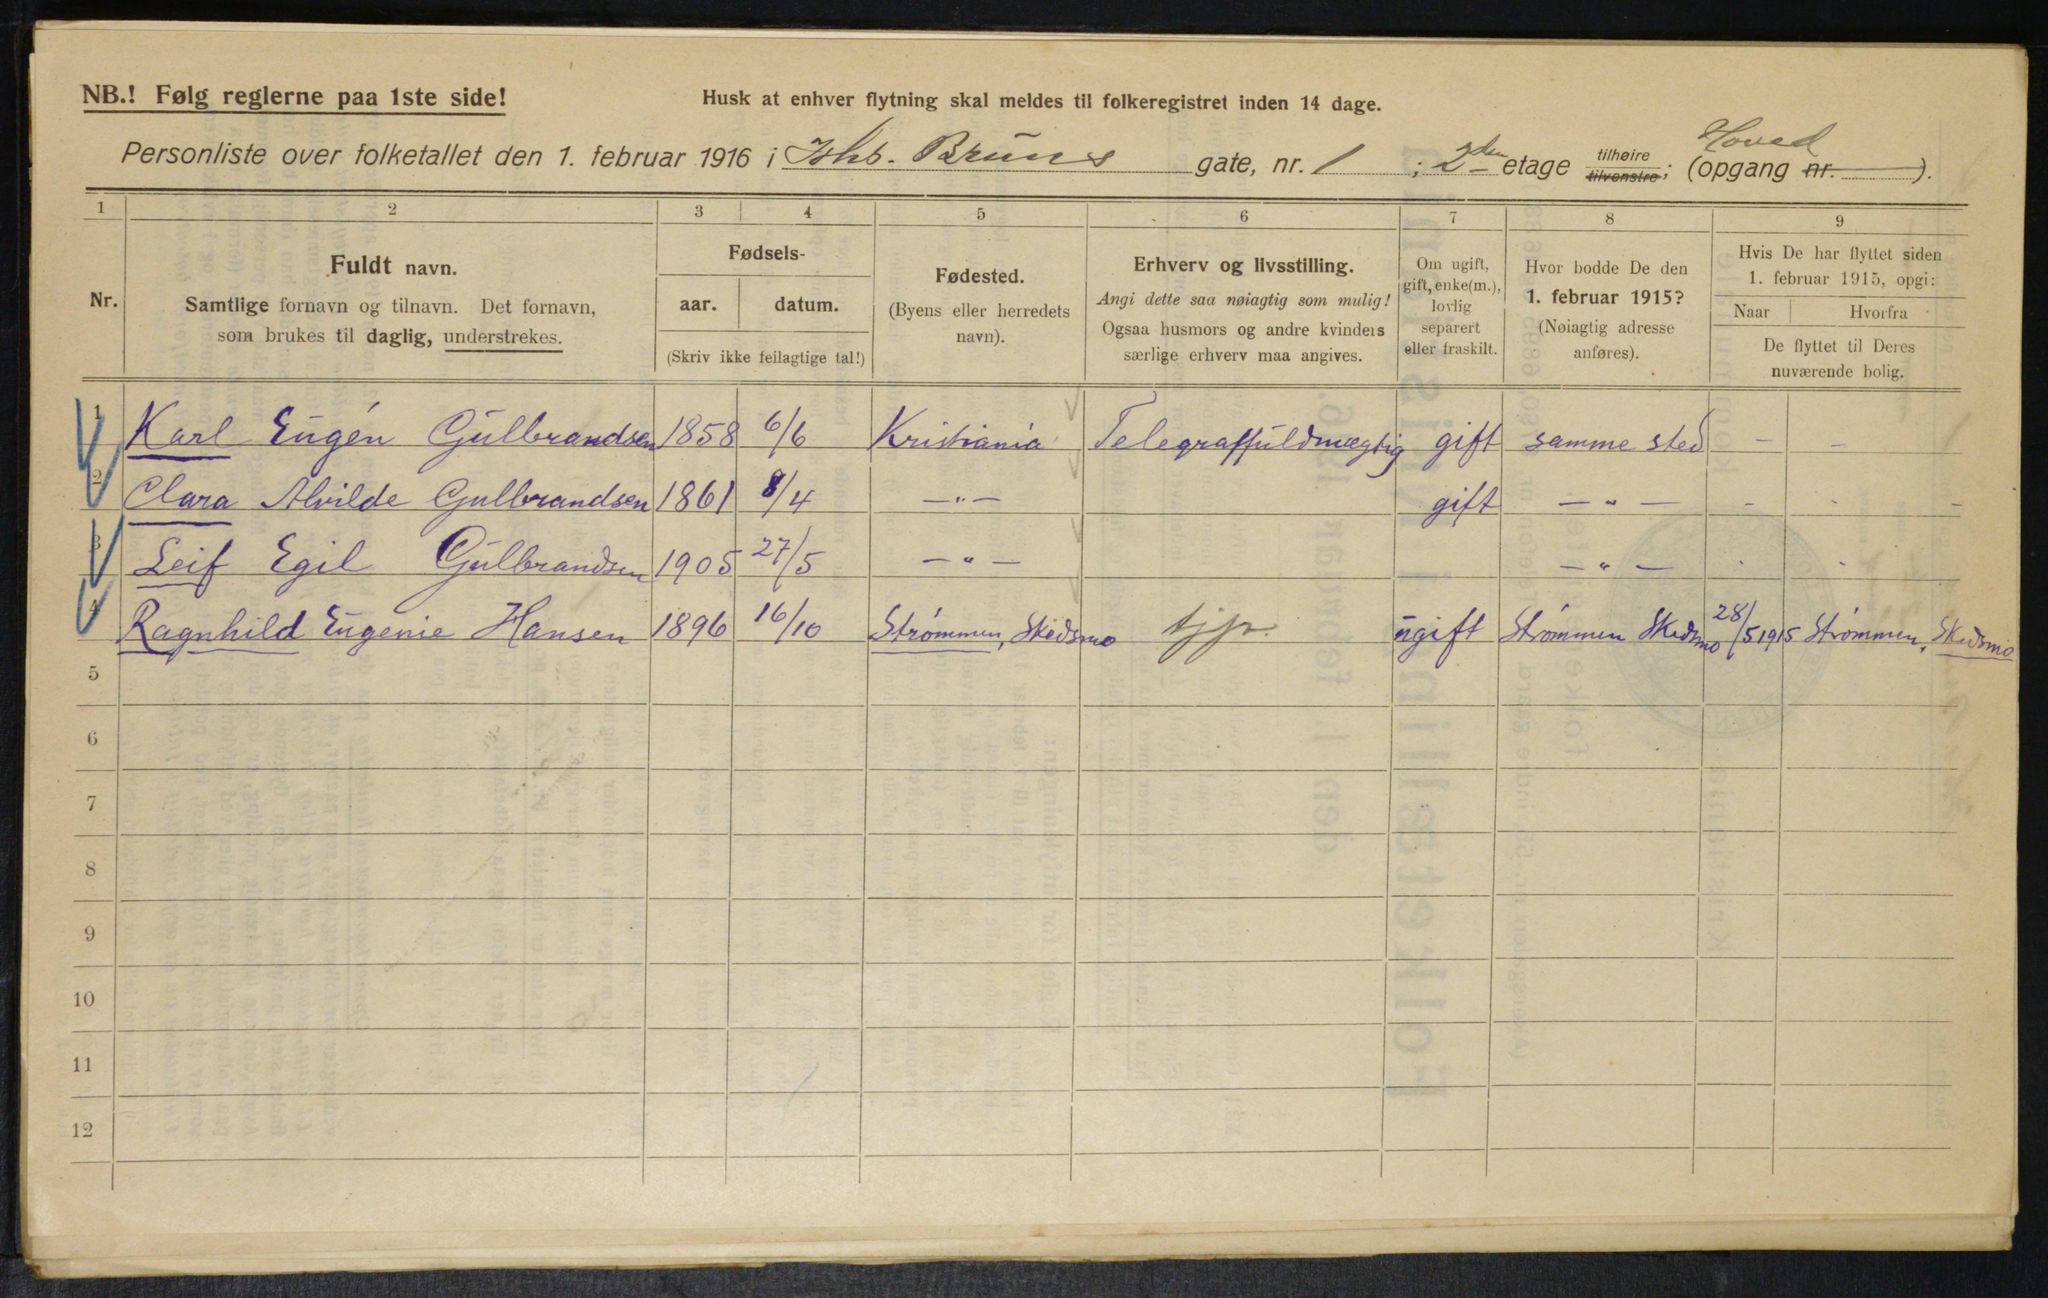 NB.! Følg reglerne paa 1ste side!
Husk at enhver flytning skal meldes til folkeregistret inden 14 dage.
Personliste over folketallet den 1. februar 1916 i Jhb. Bruns gate, nr. 1 ; 2den etage tilhøire tilvenstre; (opgang nr. Hoved ).
1 2 3 4 5 6 7 8 9
Nr.
Fuldt navn.
Samtlige fornavn og tilnavn. Det fornavn,
som brukes til daglig, understrekes.
Fødsels-
aar. datum.
(Skriv ikke feilagtige tal!)
Fødested.
(Byens eller herredets
navn).
Erhverv og livsstilling.
Angi dette saa nøiagtig som mulig!
Ogsaa husmors og andre kvinders
særlige erhverv maa angives.
Om ugift,
gift, enke(m.),
lovlig
separert
eller fraskilt.
Hvor bodde De den
1. februar 1915?
(Nøiagtig adresse
anføres).
Hvis De har flyttet siden
1. februar 1915, opgi:
Naar Hvorfra
De flyttet til Deres
nuværende bolig.
1 Karl Eugén Gulbrandsen 1858 6/6 Kristiania Telegraffuldmægtig gift samme sted - -
2 Clara Alvilde Gulbrandsen 1861 8/4 —"— gift —"— - - -
3 Leif Egil Gulbrandsen 1905 27/5 —"— —"— - -
4 Ragnhild Eugenie Hansen 1896 16/10 Strømmen, Skedsmo tjp. ugift Strømmen Skedsmo 28/5 1915 Strømmen, Skedsmo
5
6
7
8
9
10
11
12